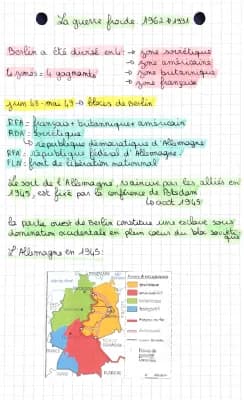 La guerre froide. 1962 → 1991
Berlin a été divisé en 4: → zone soviétique
→ zone américaine
4 zones = 4 gagnants → zone britannique
→ zone française
juin 48 - mai 49 → blocus de Berlin
RFA = français + britannique + américain
RDA = soviétique
↳ république démocratique d'Allemagne
RFA = république fédéral d'Allemagne
FLN: front de libération nationnal
Le sort de l'Allemagne, vaincue par les alliés en
1945, est fixé par la conférence de Potsdam
↳ août 1945
La partie ouest de Berlin constitue une enclave sous
domination occidentale en plein coeur du bloc soviéti-
que
L'Allemagne en 1945: